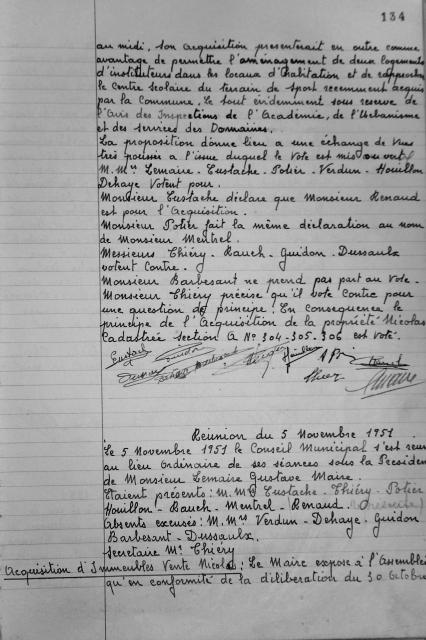 134
au midi, son acquisition presenterait en outre comme
avantage de permettre l'aménagement de deux logements
d'instituteurs dans les locaux d'habitation et de rapprocher
le Centre scolaire du terrain de sport recemment acquis
par la Commune. Le tout évidemment sous reserve de
l'avis des Inspections de l'Académie, de l'Urbanisme
et des services des Domaines.
La proposition donne lieu a une échange de vues
très poussée a l'issue duquel le vote est mis
M.Mrs Lemaire. Eustache. Potier. Verdun. Houillon
Dehaye votent pour.
Monsieur Eustache déclare que Monsieur Renaud
est pour l'acquisition.
Monsieur Potier fait la même déclaration au nom
de Monsieur Mentrel.
Messieurs Thiéry. Rauch. Guidon. Dussaulx
votent contre.
Monsieur Barbesant ne prend pas part au vote.
Monsieur Thiéry précise qu'il vote contre pour
une question de principe. En consequence le
principe de l'acquisition de la propriété Nicolas
Cadastrée section A No 304-305-306 est voté.
Réunion du 5 Novembre 1951
Le 5 Novembre 1951 le Conseil Municipal s'est reuni
au lieu Ordinaire de ses séances sous la Presiden
de Monsieur Lemaire Gustave Maire.
Etaient présents: M.Mrs Eustache - Thiéry - Potier
Houillon - Rauch - Mentrel - Renaud.
Absents excusés: M.Mrs Verdun - Dehaye - Guidon
Barbesant - Dussaulx.
Secretaire Mr Thiéry
Acquisition d'Immeubles Vente Nicolas: Le Maire expose à l'Assemblée
qu'en conformité de la délibération du 30 Octobre